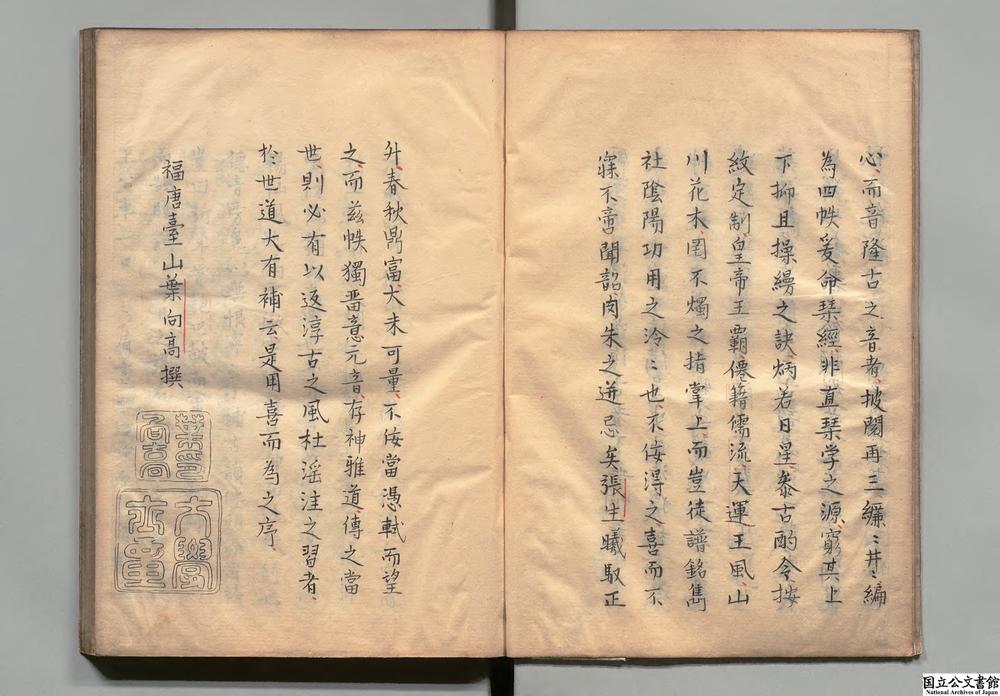 心而音隆古之音者披閱再三纚〻井〻編
為四帙爰命琴經非直琴学之源窮其上
下抑且操縵之訣炳若日星叅古酌今按
紋定制皇帝王覇儒流天運王風山
川花木罔不燭之指掌上而豈徒譜銘雋
社陰陽功用之泠〻也不佞得之喜而不
寐不啻聞韶肉朱之迸忘矣張生曦馭正
升春秋鼎富大未可量不佞當憑軾而望
之而茲帙獨畱意元音存神雅道傳之當
世則必有以返淳古之風杜滛注之習者
於世道大有補云是用喜而為之序
福唐臺山葉向高撰
葉向高
大學士章
国立公文書館
National Archives of Japan